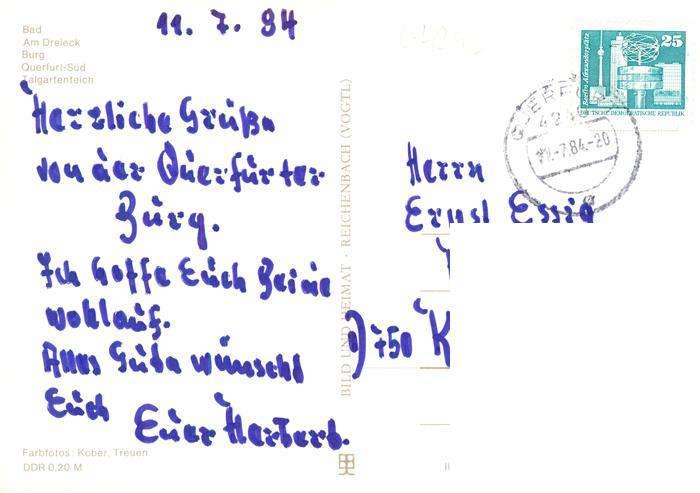 11. 7. 84
Bad
Am Dreieck
Burg
Querfurt-Süd
Talgartenteich
Herzliche Grüße
von der Querfurter
Burg.
Ich hoffe Euch Beide
wohlauf.
Alles Gute wünscht
Euch
Euer Herbert.
Farbfotos: Kober, Treuen
DDR 0,20 M
BILD UND HEIMAT · REICHENBACH (VOGTL)
25
Berlin, Alexanderplatz
DEUTSCHE DEMOKRATISCHE REPUBLIK
11.-7.84.-20
Herrn
Ernst Essig
750 K